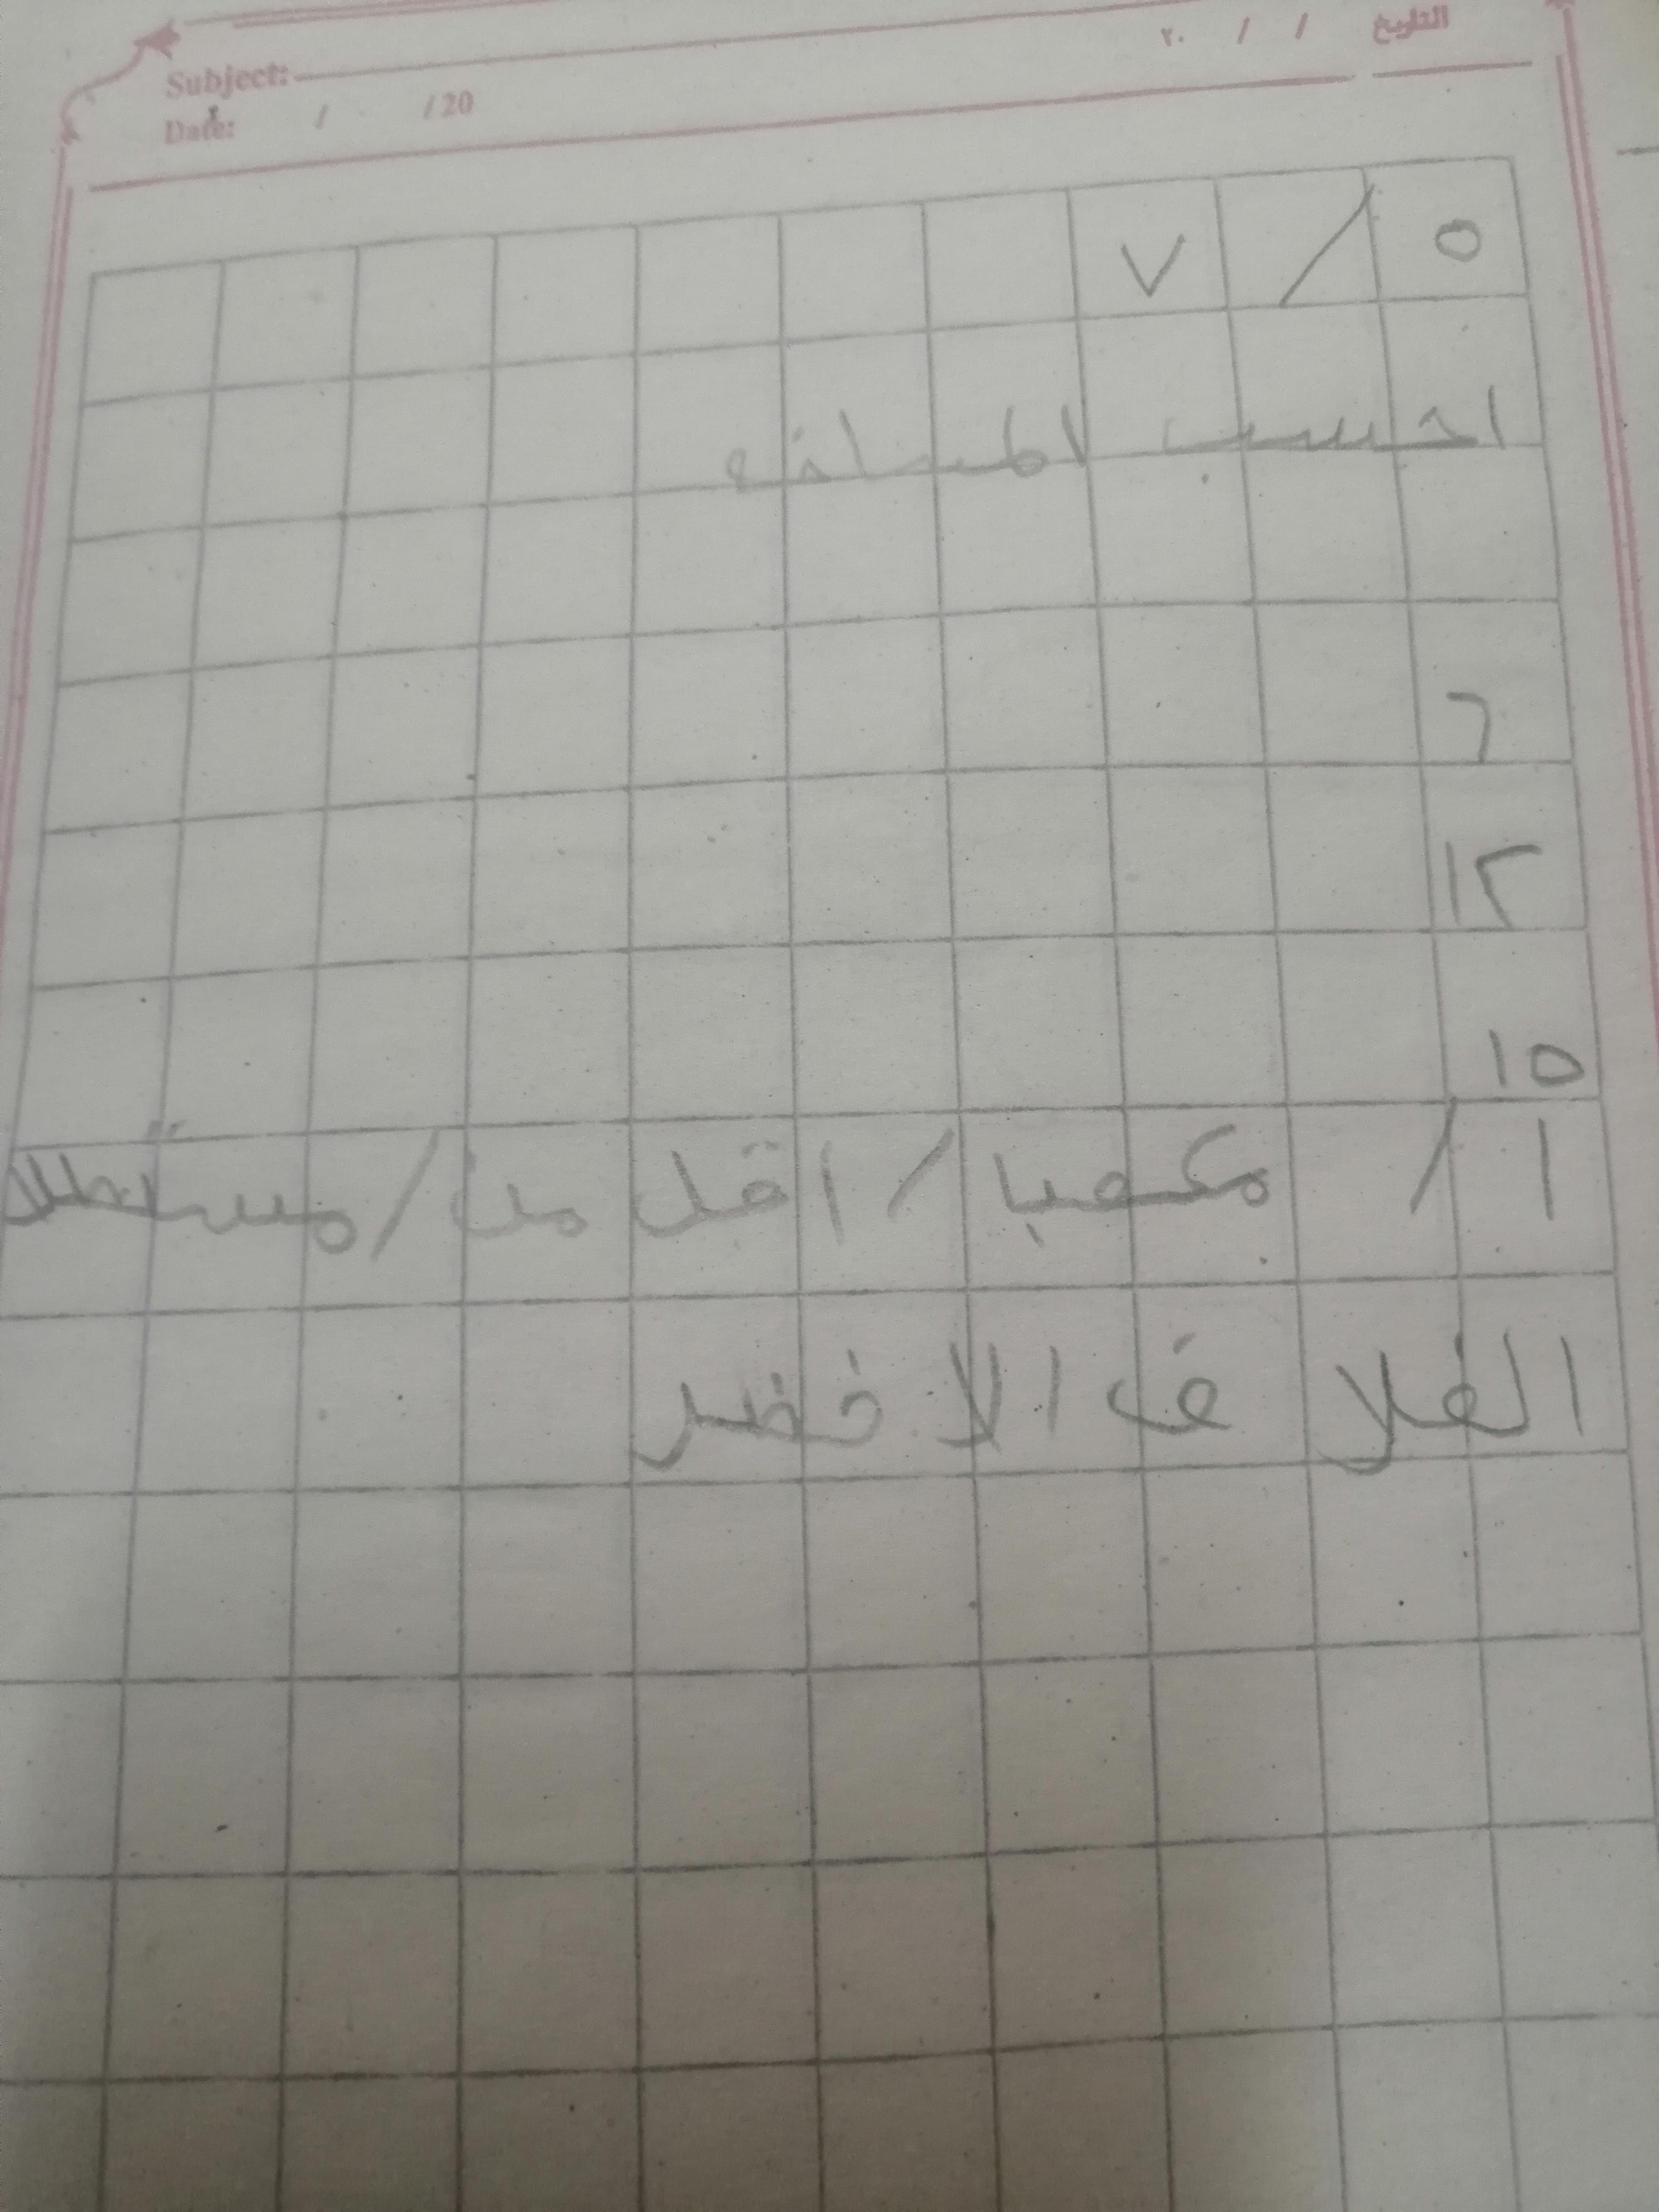 Subject:
التاريخ / / ٢٠
Date: / /20
٥ / ٧
احسب المسافه
٦
١٢
١٥
١ / مكعبا / اقل من / مستطلا
الغلاف الاخضر